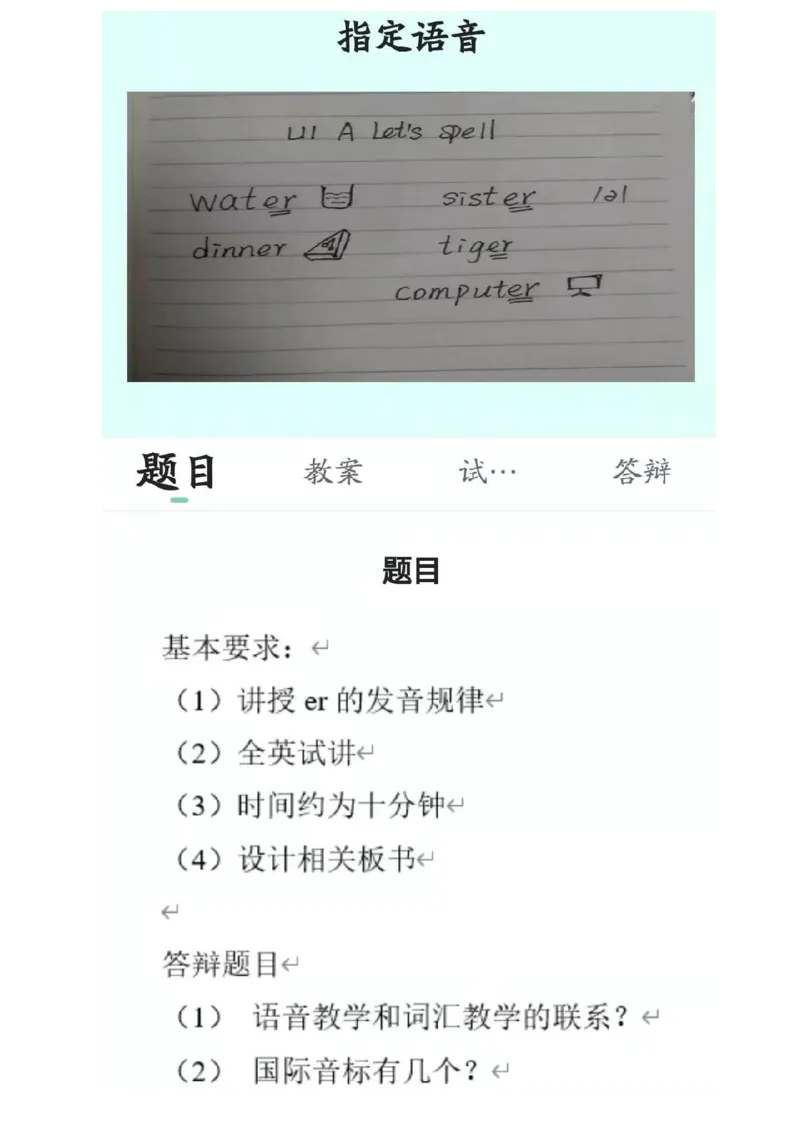 指定语音
U1 A Let's spell
water sister /ə/
dinner tiger
computer
题目 教案 试… 答辩
题目
基本要求：
（1）讲授 er 的发音规律
（2）全英试讲
（3）时间约为十分钟
（4）设计相关板书
答辩题目
（1） 语音教学和词汇教学的联系？
（2） 国际音标有几个？